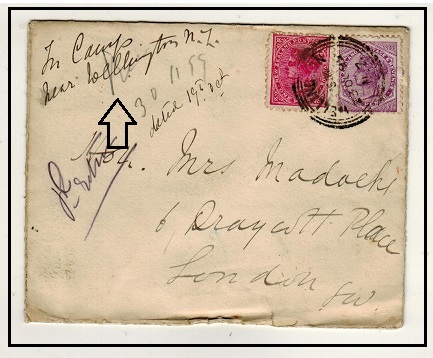 In Camp
near Wellington N.Z.
30 11 99
dated 19th Oct
No 4.
Mrs Madocks
6 Draycott Place
London
SW.